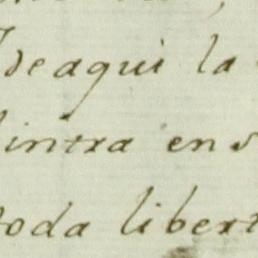 deaqui la
intra en
toda libert